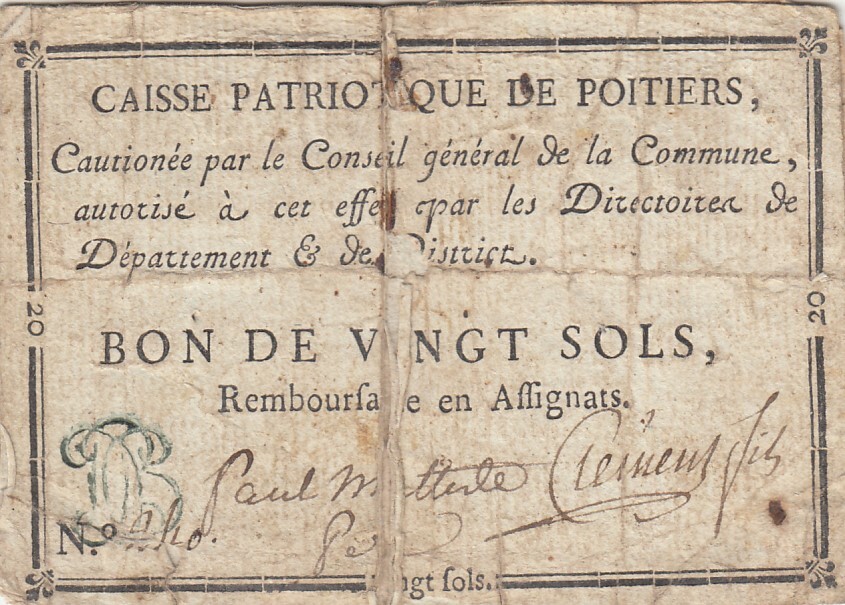 CAISSE PATRIOTIQUE DE POITIERS,
Cautionée par le Conseil général de la Commune,
autorisé à cet effet par les Directoires de
Département & de District.
20
20
BON DE VINGT SOLS,
Rembourſable en Aſſignats.
Paul Clément fils
N.º
Vingt ſols.